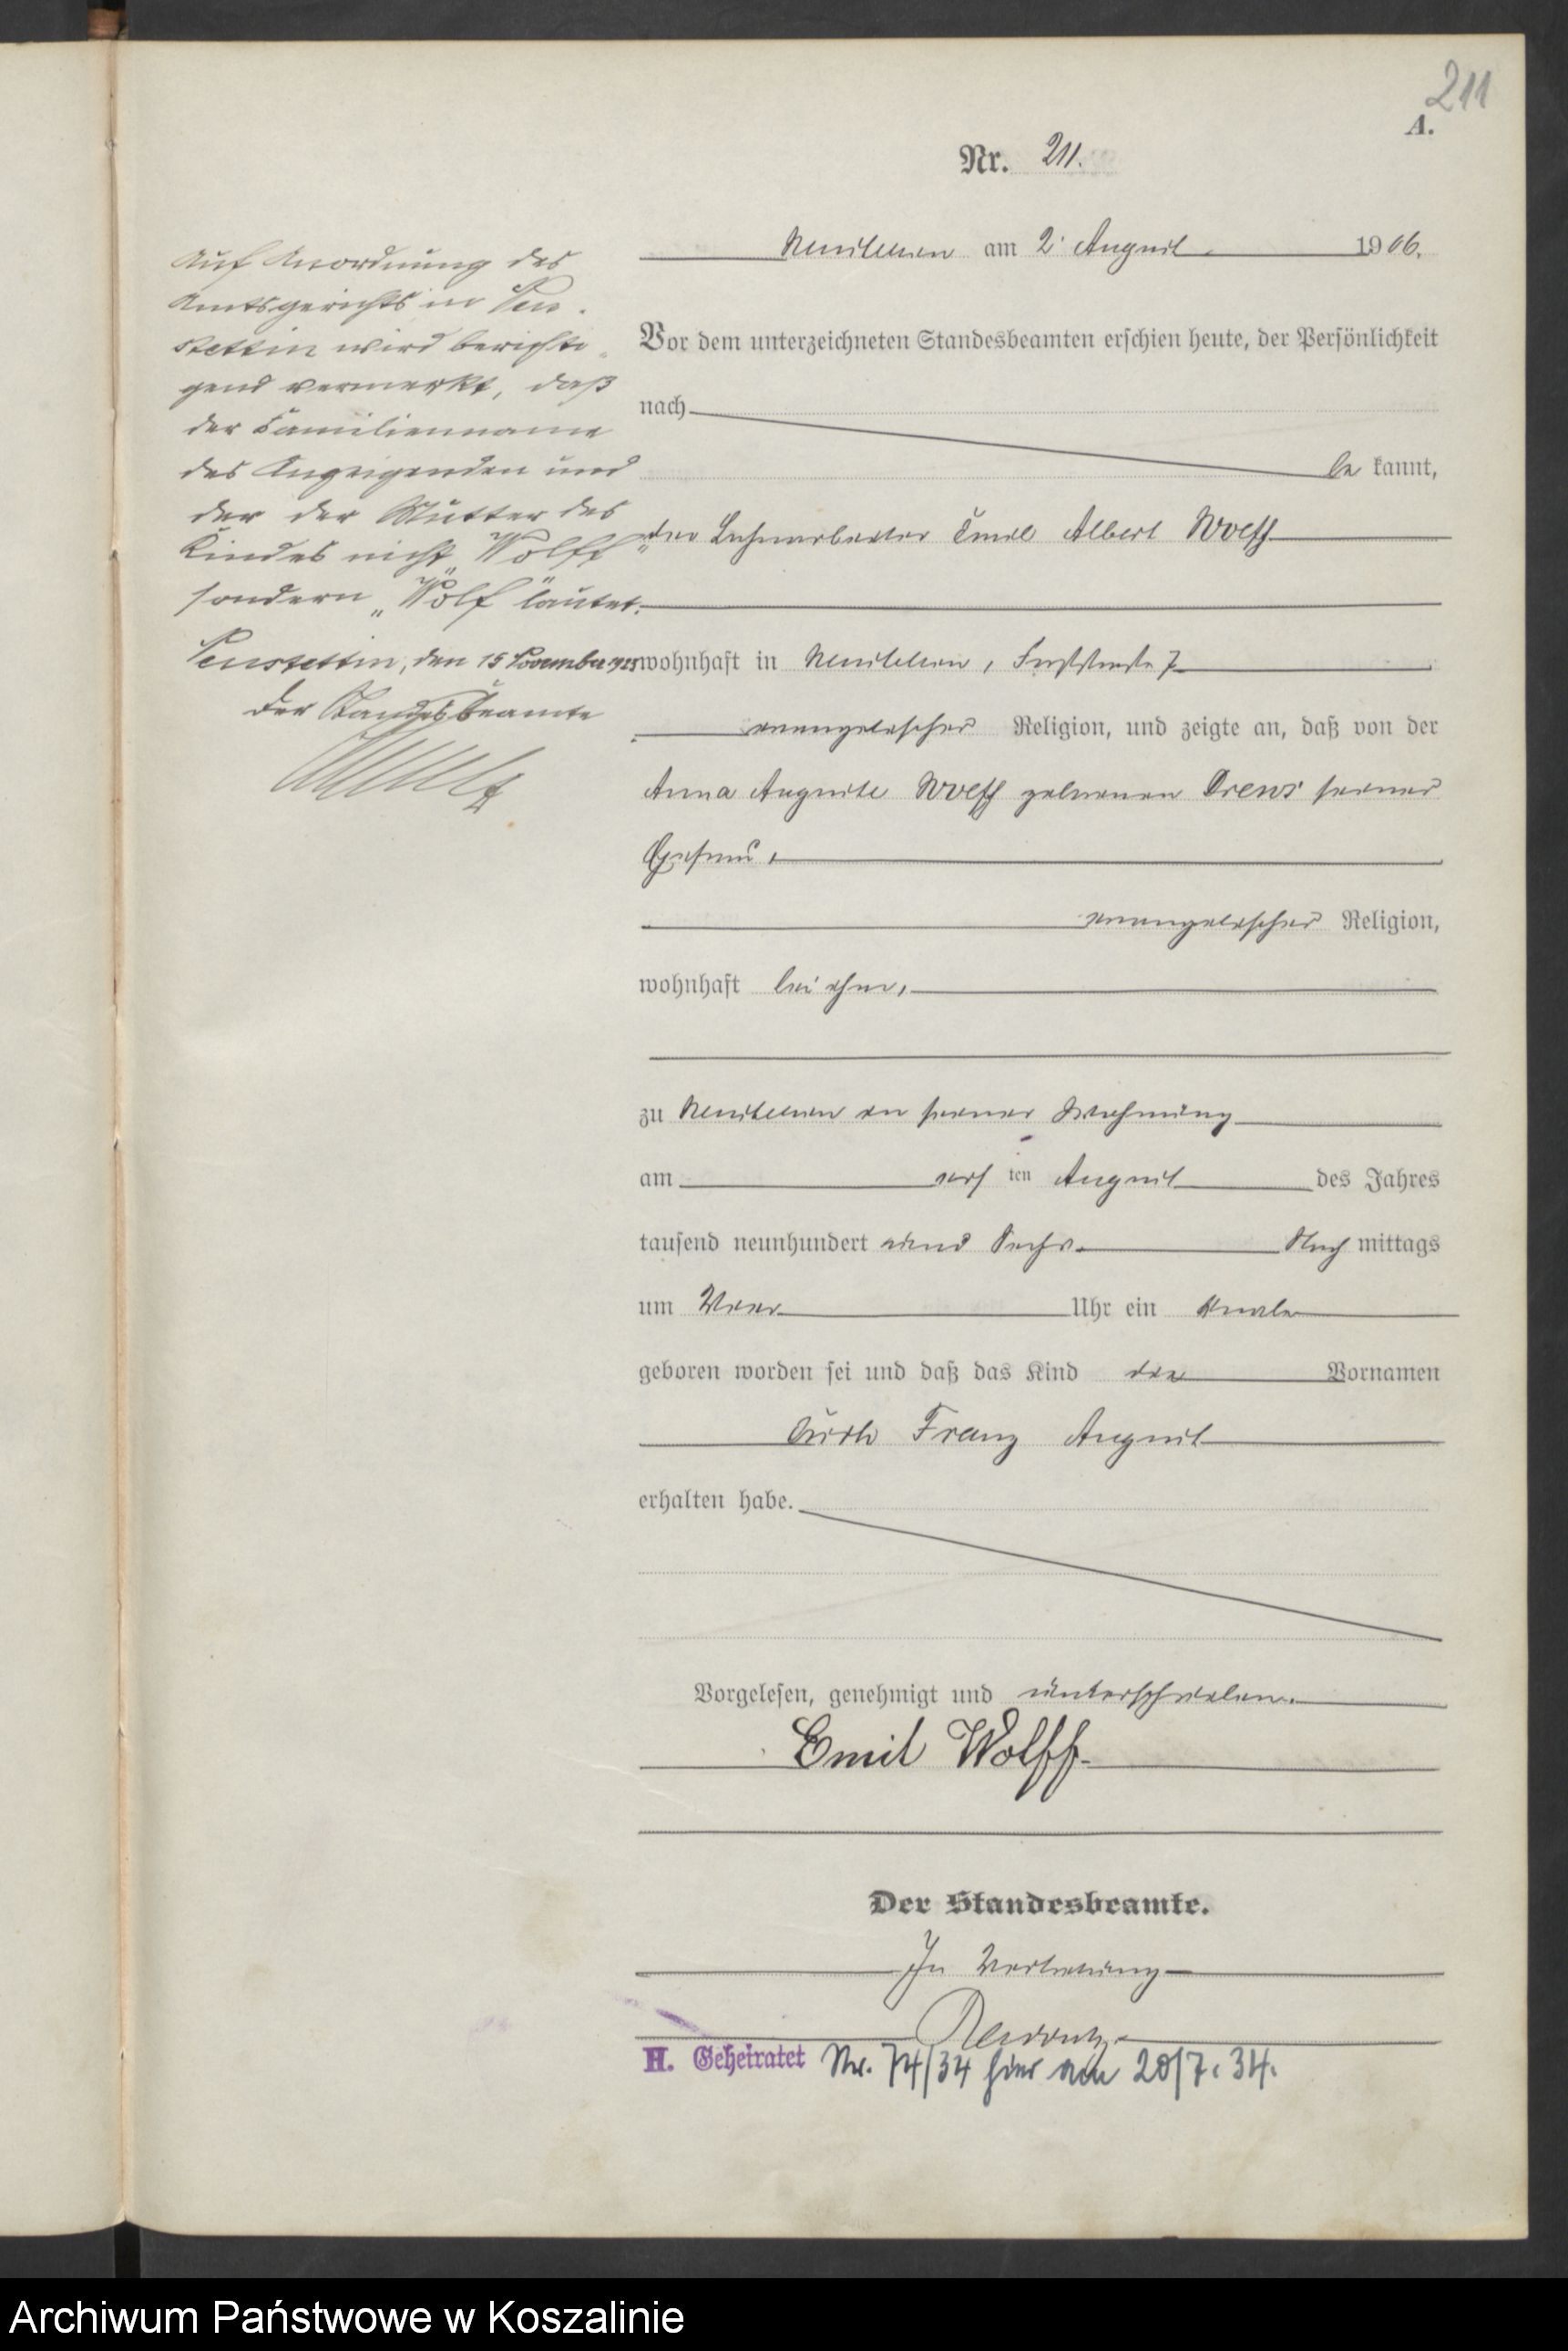 211
A.
Nr. 211.
Neustettin am 2. August 1906.
Auf Anordnung des
Amtsgerichts in Neu-
stettin wird berichti-
gend vermerkt, daß
der Familienname
des Anzeigenden und
der der Mutter des
Kindes nicht „Wolff"
sondern „Wolf" lautet.
Neustettin, den 15 November
Der Standesbeamte
Vor dem unterzeichneten Standesbeamten erschien heute, der Persönlichkeit
nach
be kannt,
der Emil Albert Wolff
wohnhaft in Neustettin, 7
evangelischer Religion, und zeigte an, daß von der
Anna Auguste Wolff geborenen Drews seiner
Ehefrau,
evangelischer Religion,
wohnhaft bei ihm,
zu Neustettin in seiner Wohnung
am ten August des Jahres
tausend neunhundert und Sechs Nach mittags
um Vier Uhr ein Knabe
geboren worden sei und daß das Kind die Vornamen
Franz August
erhalten habe.
Vorgelesen, genehmigt und unterschrieben.
Emil Wolff
Der Standesbeamte.
In Vertretung
H. Geheiratet Nr. 74/34 hier am 20/7. 34.
Archiwum Państwowe w Koszalinie